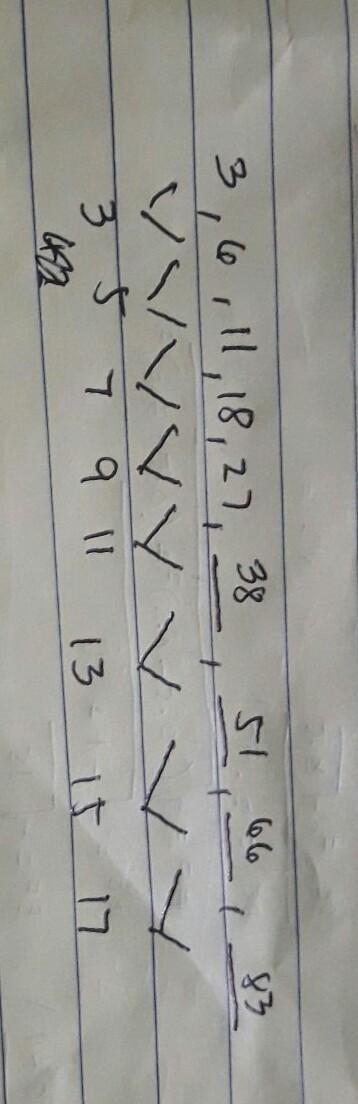 3, 6, 11, 18, 27, 38, 51, 66, 83
3 5 7 9 11 13 15 17